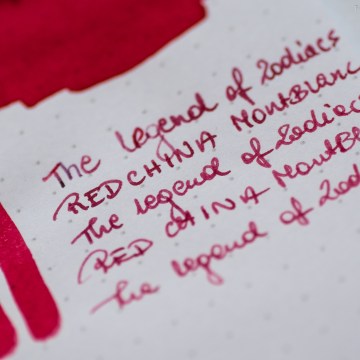 The legend of Zodiacs
RED CHINA MONTBLANC
The legend of Zodiacs
RED CHINA MONTBL
The legend of Zod